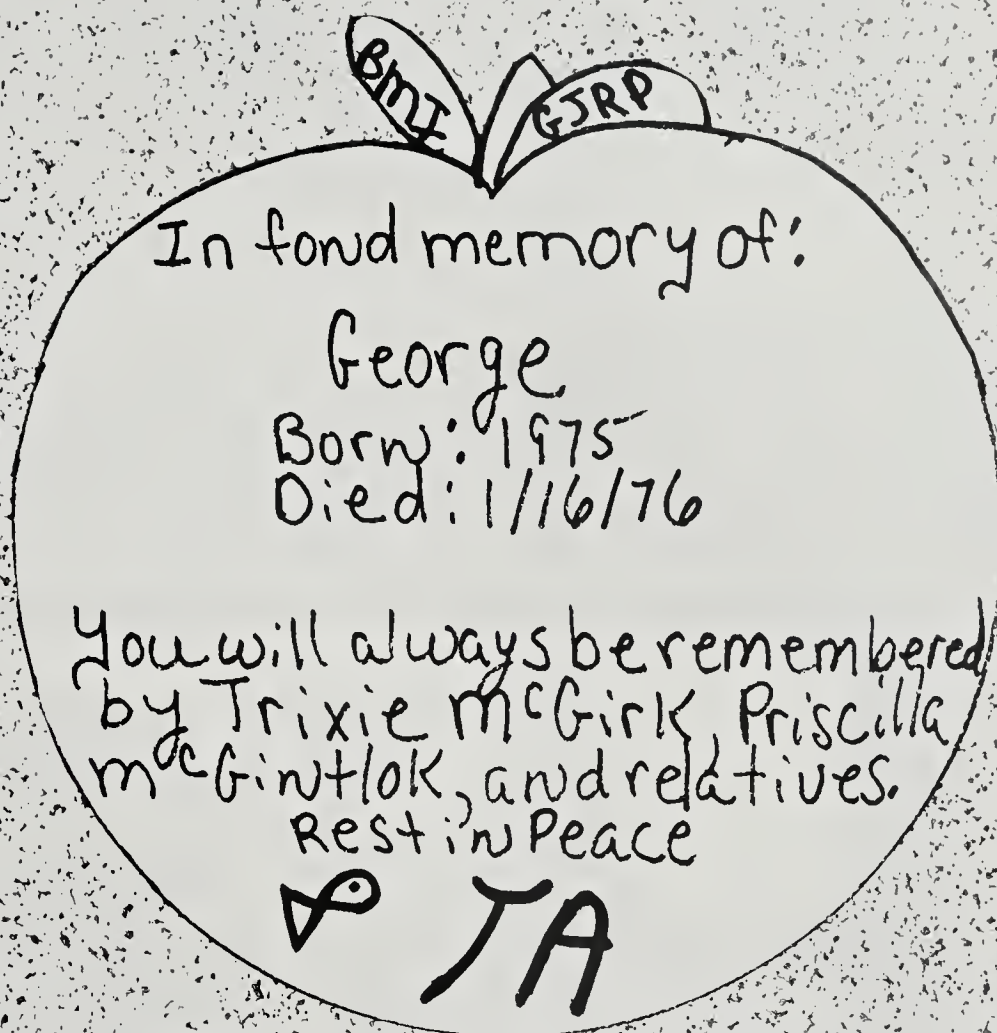 BMI
GJRP
In fond memory of:
George
Born: 1975
Died: 1/16/76
You will always be remembered
by Trixie McGirk, Priscilla
McGintlok, and relatives.
Rest in Peace
TA